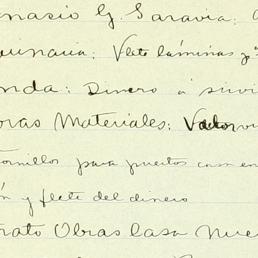 nasio G. Saravia:
Flete láminas y
nda: Dinero á
oras Materiales: Valor
Tornillos para puertas casa en
n y flete del dinero
rato Obras Casa Nue